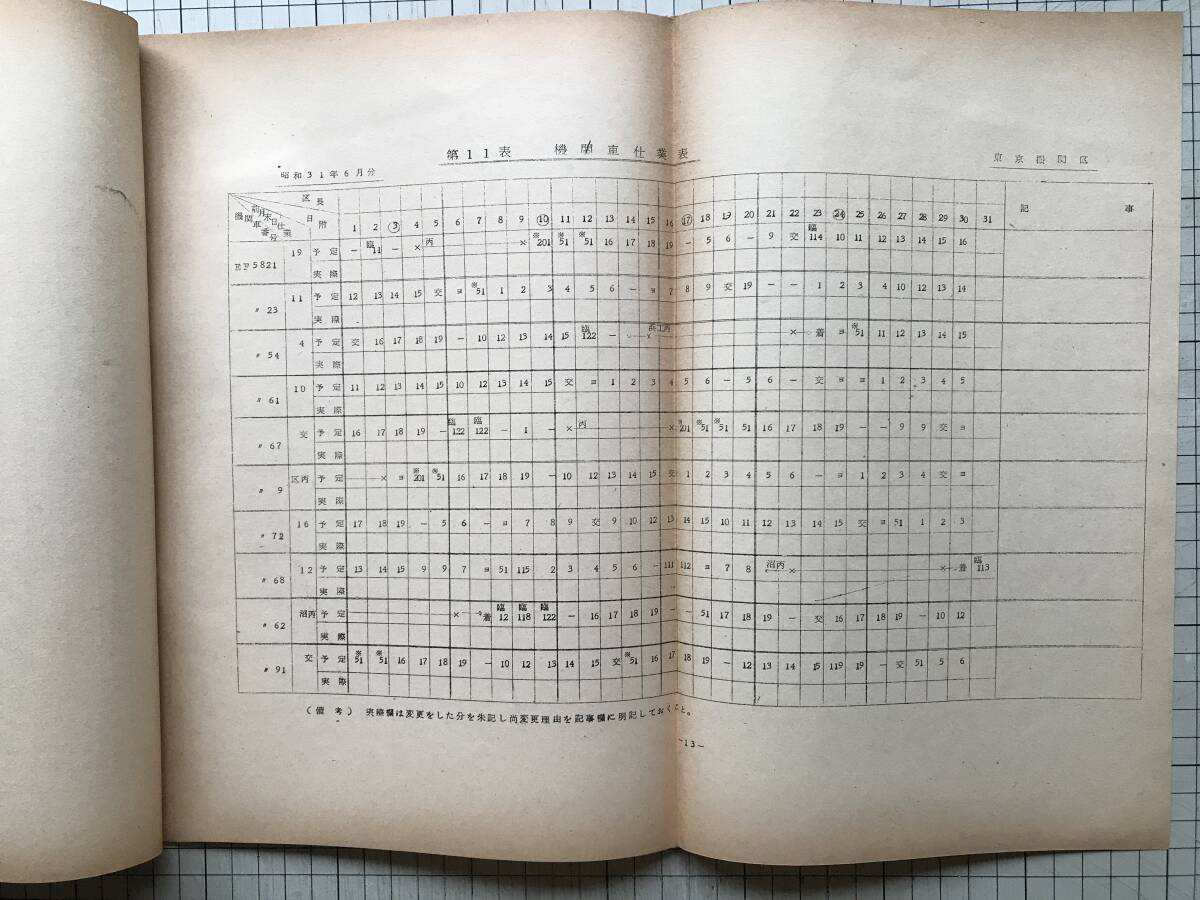 第11表 機関車仕業表
昭和31年6月分
東京機関区
区長
機関車番号 前月末日仕業 日附 1 2 3 4 5 6 7 8 9 10 11 12 13 14 15 16 17 18 19 20 21 22 23 24 25 26 27 28 29 30 31 記事
EF5821 19 予定 － 臨11 － × 丙 × ※201 ※51 ※51 16 17 18 19 － 5 6 － 9 交 臨114 10 11 12 13 14 15 16
実際
〃23 11 予定 12 13 14 15 交 ヨ ※51 1 2 3 4 5 6 － ヨ 7 8 9 交 19 － － 1 2 3 4 10 12 13 14
実際
〃54 4 予定 交 16 17 18 19 － 10 12 13 14 15 臨122 － × 浜工丙 × 着 ヨ ※51 11 12 13 14 15
実際
〃61 10 予定 11 12 13 14 15 10 12 13 14 15 交 ヨ 1 2 3 4 5 6 － 5 6 － 交 ヨ ヨ 1 2 3 4 5
実際
〃67 交 予定 16 17 18 19 － 臨122 臨122 － 1 － × 丙 × ※201 ※51 ※51 51 16 17 18 19 － － 9 9 交 ヨ
実際
〃9 区丙 予定 × ヨ ※201 ※51 16 17 18 19 － 10 12 13 14 15 交 1 2 3 4 5 6 － ヨ 1 2 3 4 交 ヨ
実際
〃72 16 予定 17 18 19 － 5 6 － ヨ 7 8 9 交 9 10 12 13 14 15 10 11 12 13 14 15 交 ヨ 51 1 2 3
実際
〃68 12 予定 13 14 15 9 9 7 ヨ 51 115 2 3 4 5 6 － 111 112 ヨ 7 8 沼丙 × × 着 臨113
実際
〃62 沼丙 予定 × 着 臨12 臨118 臨122 － 16 17 18 19 － － 51 17 18 19 － 交 16 17 18 19 － 10 12
実際
〃91 交 予定 ※51 ※51 16 17 18 19 － 10 12 13 14 15 交 ※51 16 17 18 19 － 12 13 14 15 119 19 － 交 51 5 6
実際
（備考） 実際欄は変更をした分を朱記し尚変更理由を記事欄に明記しておくこと。
－13－